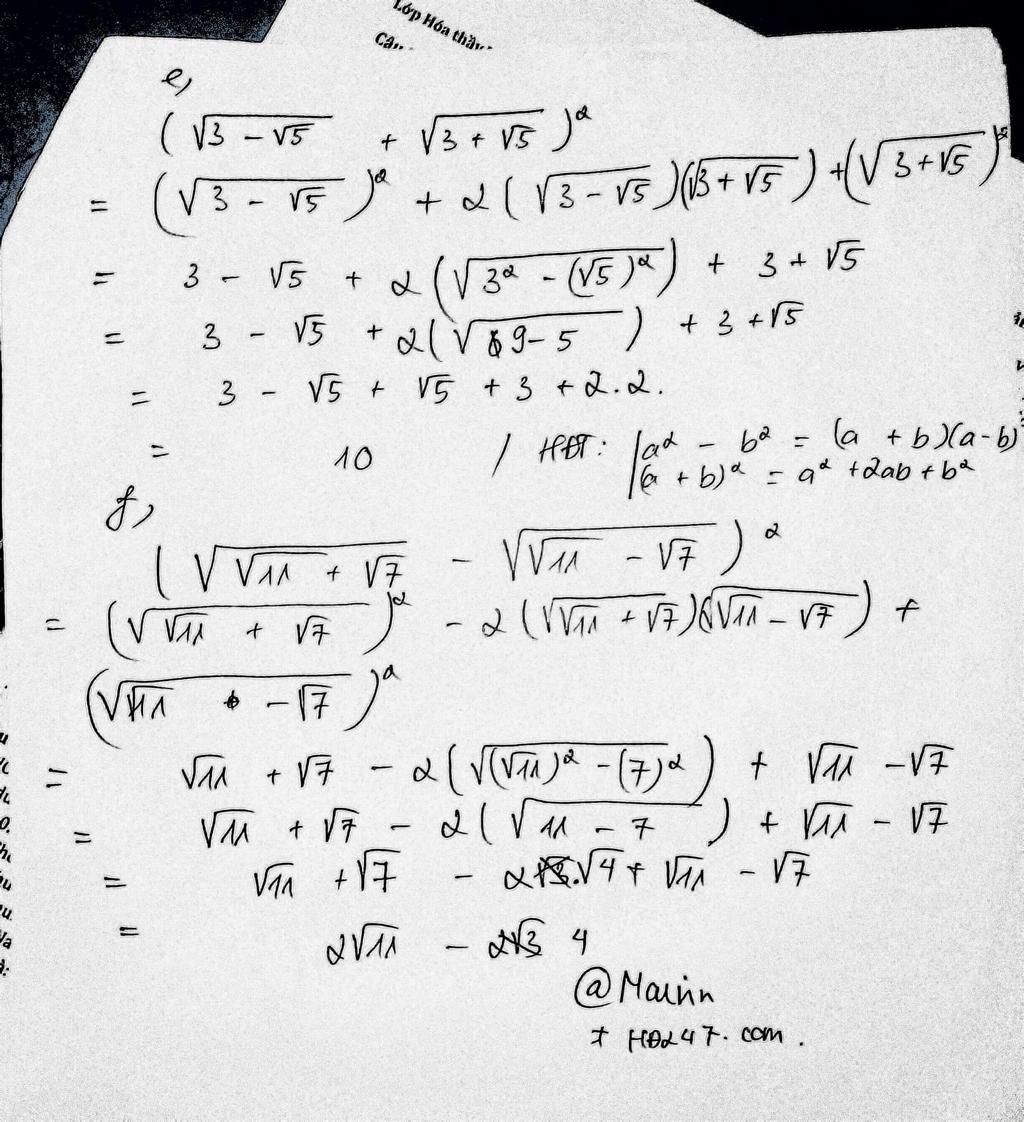 Lớp Hóa thầy
e,
(√(3 - √5) + √(3 + √5))²
= (√(3 - √5))² + 2(√(3 - √5))(√(3 + √5)) + (√(3 + √5))²
= 3 - √5 + 2(√(3² - (√5)²)) + 3 + √5
= 3 - √5 + 2(√(9 - 5)) + 3 + √5
= 3 - √5 + √5 + 3 + 2.2.
= 10 / HĐT: | a² - b² = (a + b)(a - b)
| (a + b)² = a² + 2ab + b²
f,
(√(√11 + √7) - √(√11 - √7))²
= (√(√11 + √7))² - 2(√(√11 + √7))(√(√11 - √7)) +
(√(√11 - √7))²
= √11 + √7 - 2(√((√11)² - (7)²)) + √11 - √7
= √11 + √7 - 2(√(11 - 7)) + √11 - √7
= √11 + √7 - 2.√4 + √11 - √7
= 2√11 - 4